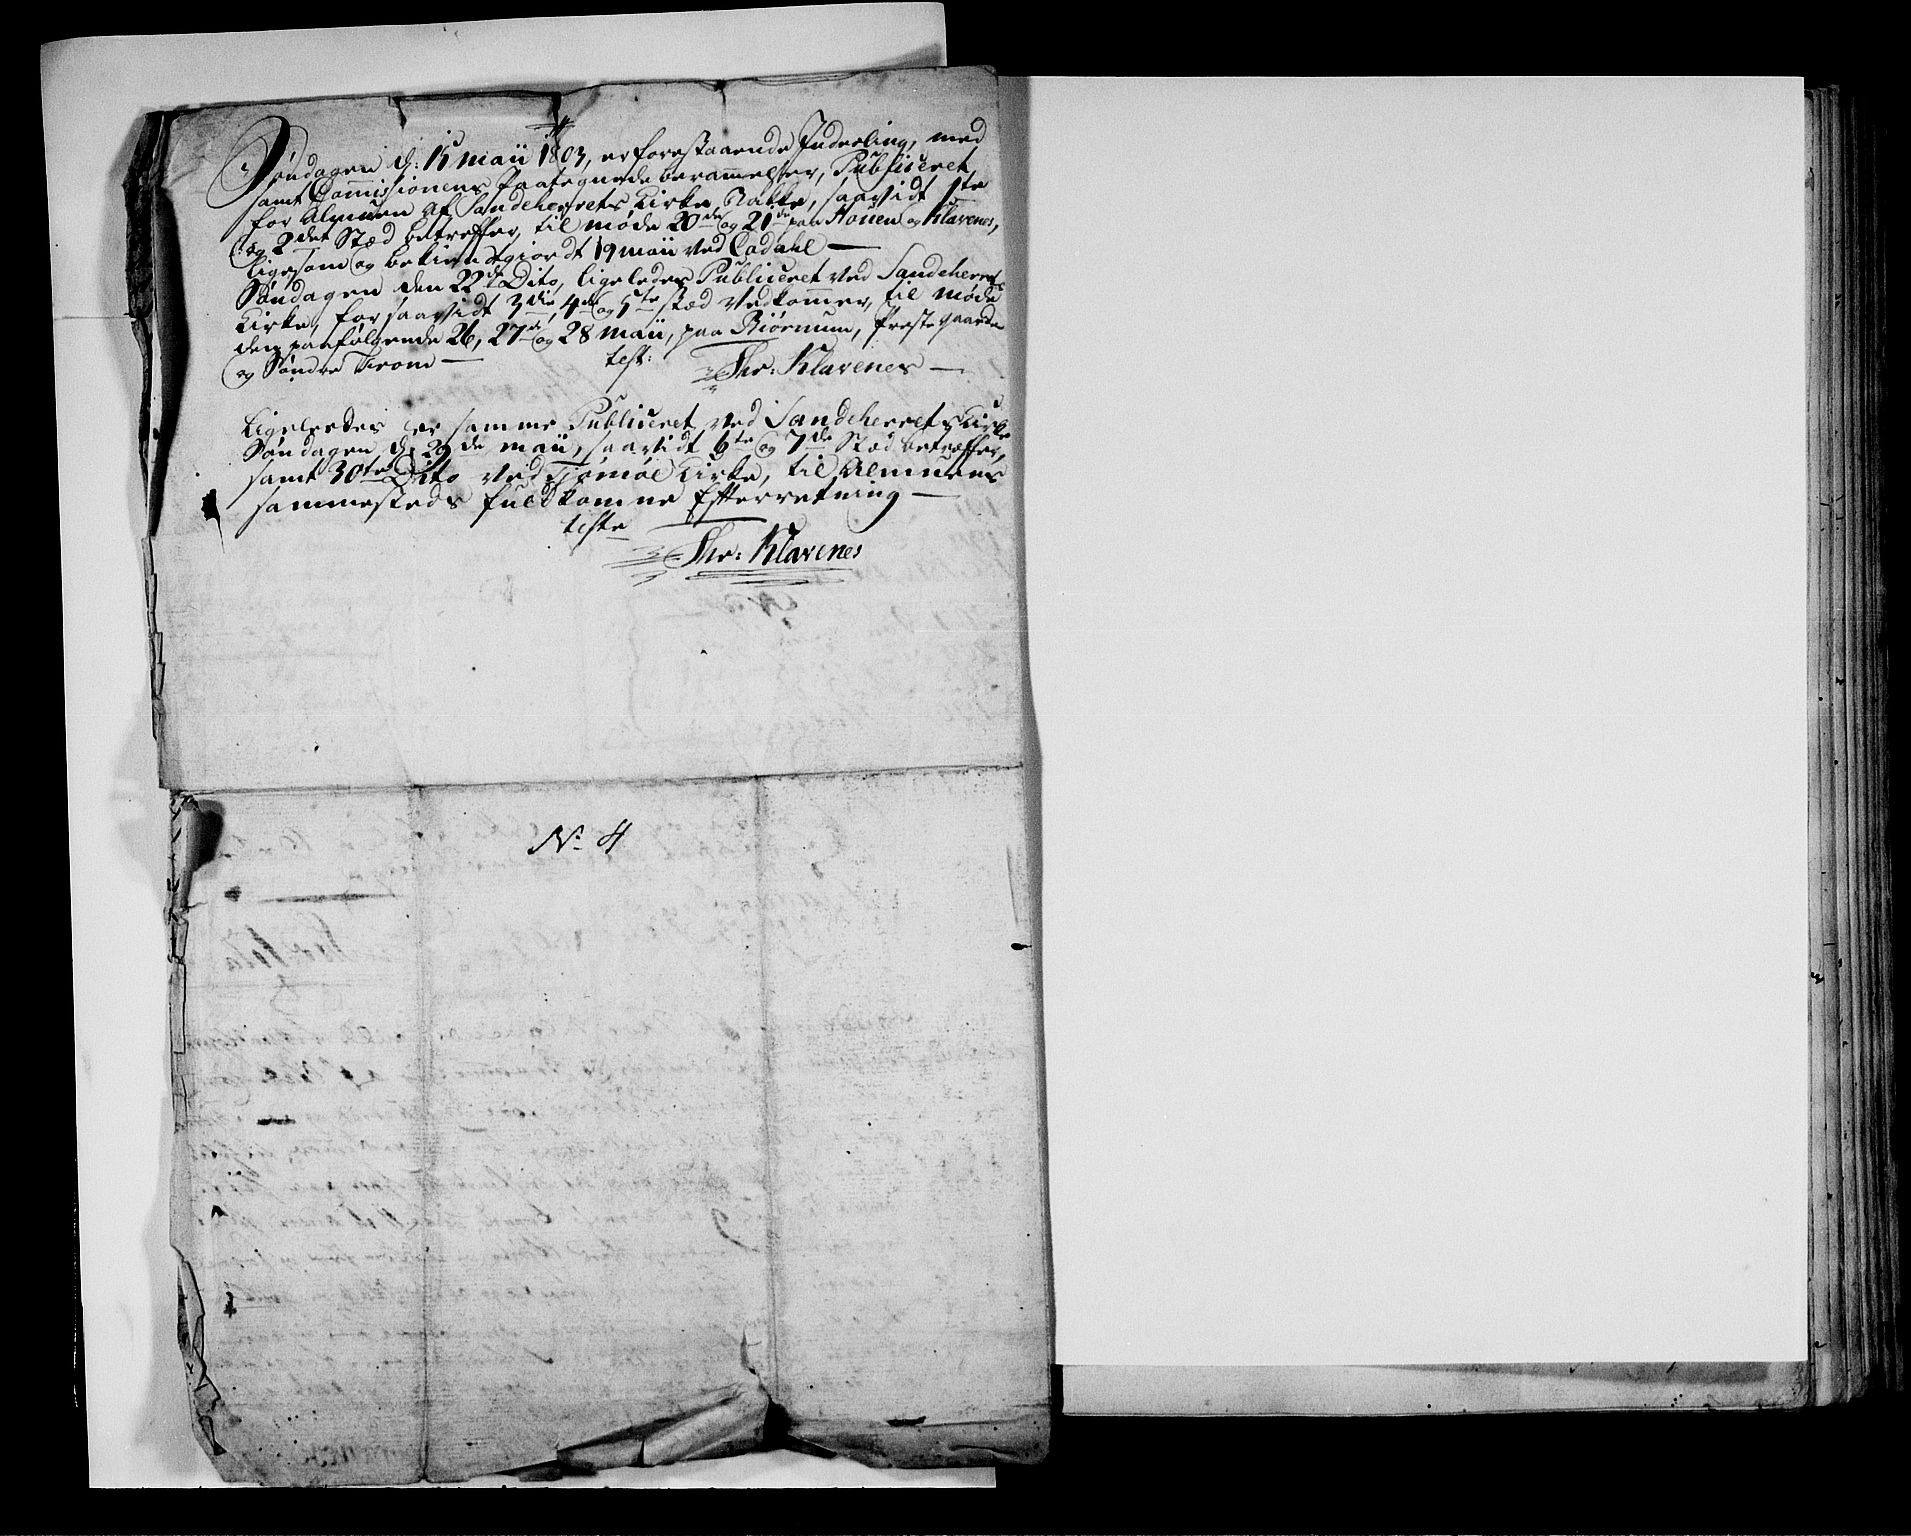 Søndagen d: 15 maii 1803, er forestaaende Inddeling, med
samt Commissionens Paategnede berammelser, Publiceret,
for Almuen af Sandeherrets Kirke Bakke, saavidt 1te
og 2det Stæd betreffer, til møde 20de og 21de paa Houen og Klavenes,
ligesom og bekiendtgiordt 19 maii ved Cadahl —
Søndagen den 22de Dito, ligeledes Publiceret ved Sandeherrets
Kirke, for saavidt 3die, 4de og 5te stæd vedkommer, til møde
den paafølgende 26, 27de og 28 maii, paa Biørnum, Prestegaarden
og Søndre Trom —
test:
Thr: Klavenes —
Ligeledes er samme Publiceret ved Sandeherrets Kirke
Søndagen d: 29de maii, saavidt 6te og 7de Stæd betræffer,
samt 30te Dito ved Tiømøe Kirke, til Almuens
sammesteds fuldkomne Efterretning —
teste
Thr: Klavenes
No 4